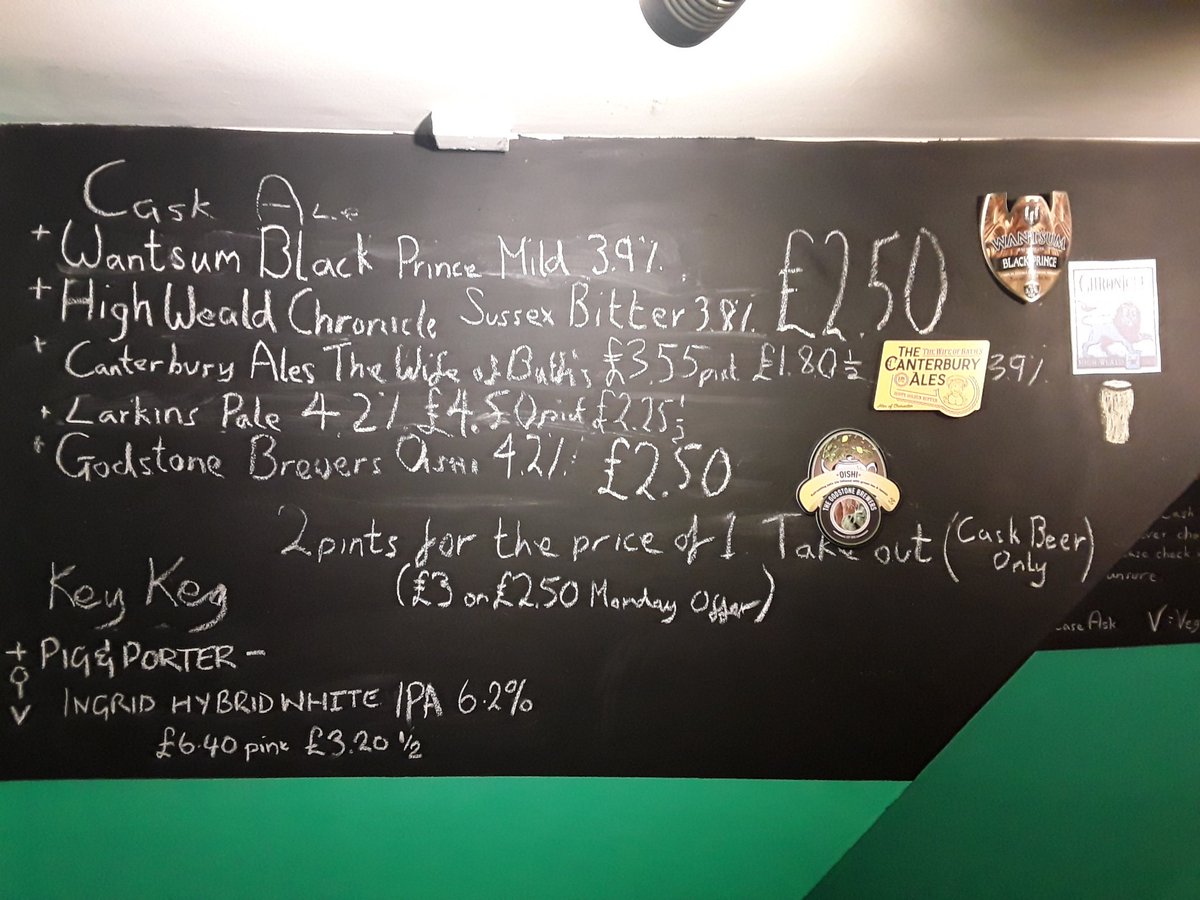 Cask Ale
+ Wantsum Black Prince Mild 3.9% £2.50
+ High Weald Chronicle Sussex Bitter 3.8%
+ Canterbury Ales The Wife of Bath's £3.55 pint £1.80 ½ 3.9%
+ Larkins Pale 4.2% £4.50 pint £2.25 ½
+ Godstone Brewers Oishi 4.2% £2.50
2 pints for the price of 1. Take out (Cask Beer Only)
(£3 on £2.50 Monday Offer)
Key Keg
+ PIG & PORTER -
V INGRID HYBRID WHITE IPA 6.2%
£6.40 pint £3.20 ½
WANTSUM
BLACK PRINCE
CHRONICLE
THE WIFE OF BATH'S
THE CANTERBURY ALES
OISHI
THE GODSTONE BREWERS
unsure.
Ask V = Veg